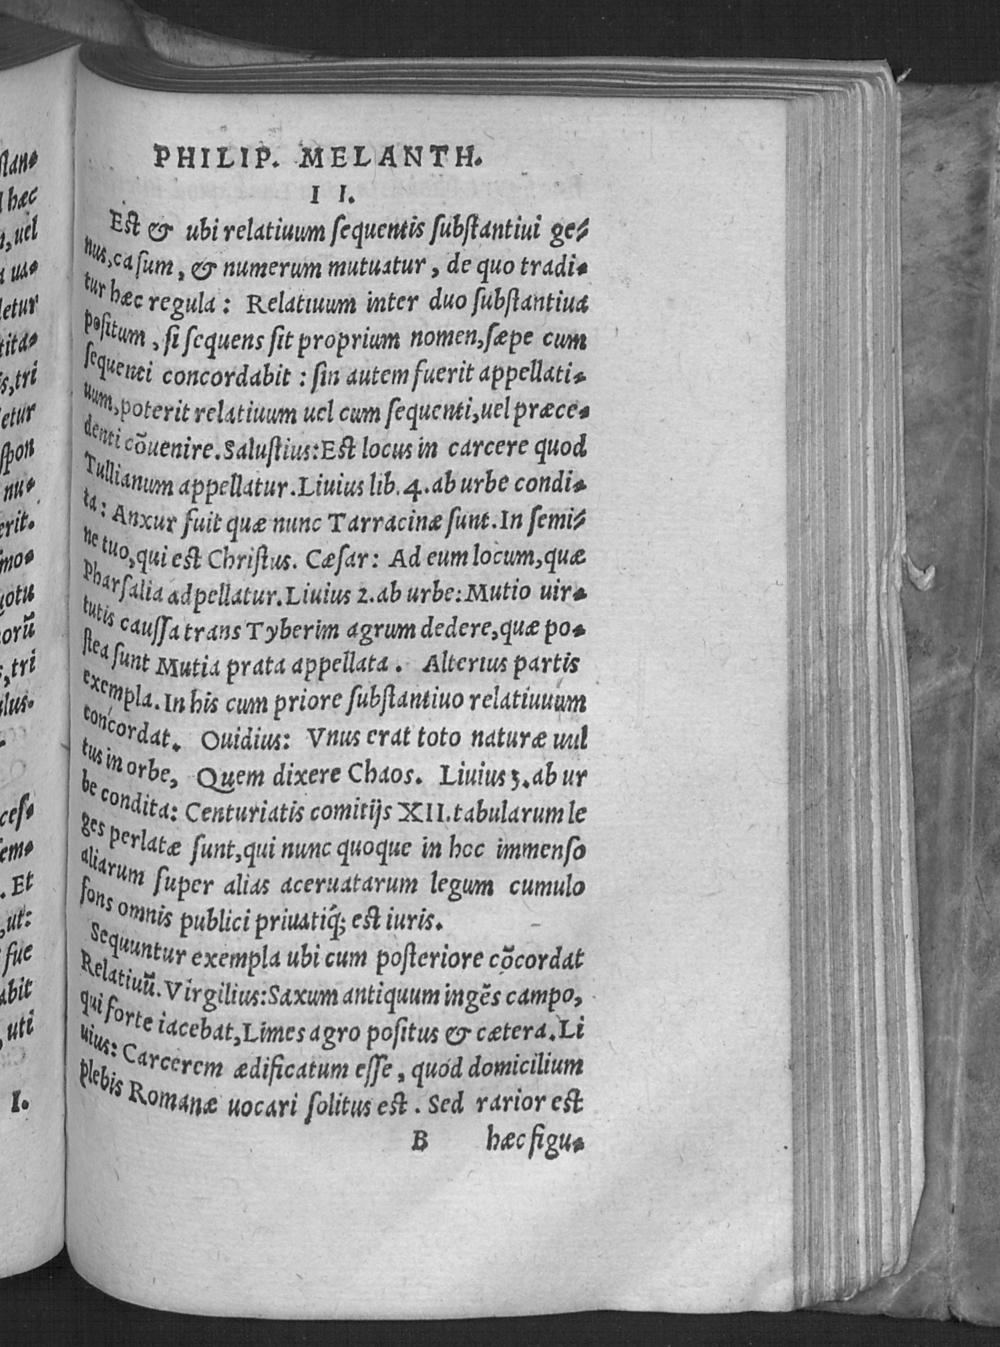 PHILIP. MELANTH.
II.
Est & ubi relatiuum sequentis substantiui ge-
nus, casum, & numerum mutuatur, de quo tradi-
tur hæc regula: Relatiuum inter duo substantiua
positum, si sequens sit proprium nomen, sæpe cum
sequenti concordabit: sin autem fuerit appellati-
uum, poterit relatiuum uel cum sequenti, uel præce-
denti cõuenire. Salustius: Est locus in carcere quod
Tullianum appellatur. Liuius lib. 4. ab urbe condi-
ta: Anxur fuit quæ nunc Tarracinæ sunt. In semi-
ne tuo, qui est Christus. Cæsar: Ad eum locum, quæ
Pharsalia adpellatur. Liuius 2. ab urbe: Mutio uir-
tutis caussa trans Tyberim agrum dedere, quæ po-
stea sunt Mutia prata appellata. Alterius partis
exempla. In his cum priore substantiuo relatiuuum
concordat. Ouidius: Vnus erat toto naturæ uul
tus in orbe, Quem dixere Chaos. Liuius 3. ab ur
be condita: Centuriatis comitijs XII. tabularum le
ges perlatæ sunt, qui nunc quoque in hoc immenso
aliarum super alias aceruatarum legum cumulo
fons omnis publici priuatiq́; est iuris.
Sequuntur exempla ubi cum posteriore cõcordat
Relatiuũ. Virgilius: Saxum antiquum ingẽs campo,
qui forte iacebat, Limes agro positus & cætera. Li
uius: Carcerem ædificatum esse, quod domicilium
plebis Romanæ uocari solitus est. Sed rarior est
B hæc figu-
stan-
hæc
uel
ua-
letur
tita-
tri
etur
spon
nu-
erit.
mo-
quotu
orũ
tri
lus.
ces-
em-
Et
ut:
fue
abit
uti
I.